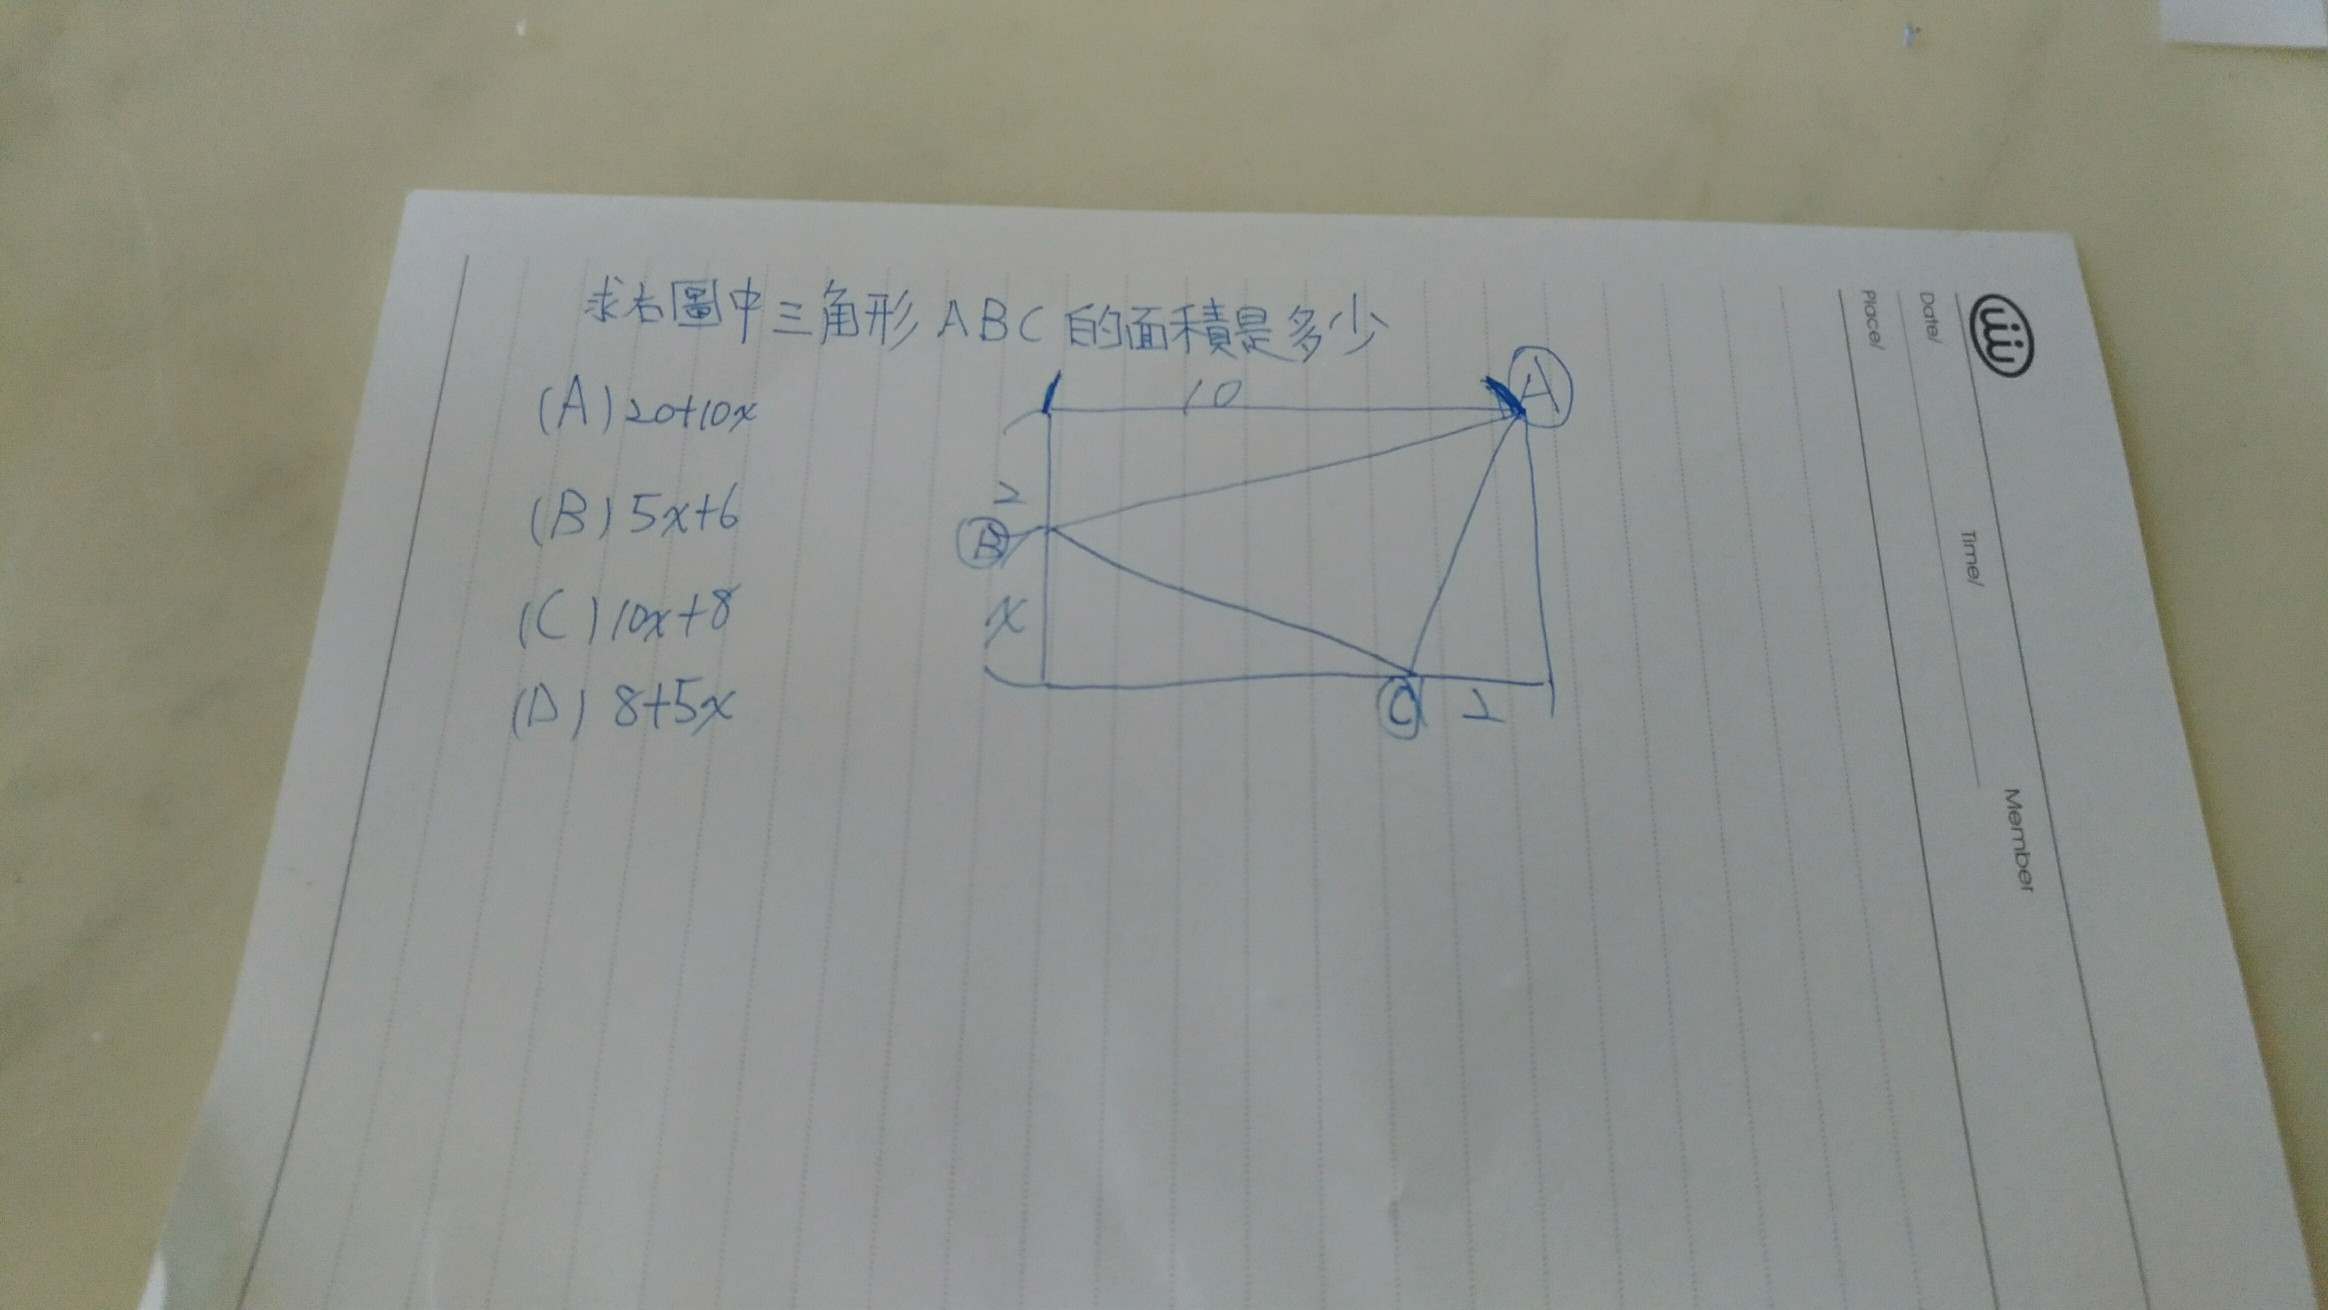 求右圖中三角形ABC的面積是多少
(A) 20+10x
(B) 5x+6
(C) 10x+8
(D) 8+5x
10
A
2
B
x
C
2
Date/
Place/
Time/
Member